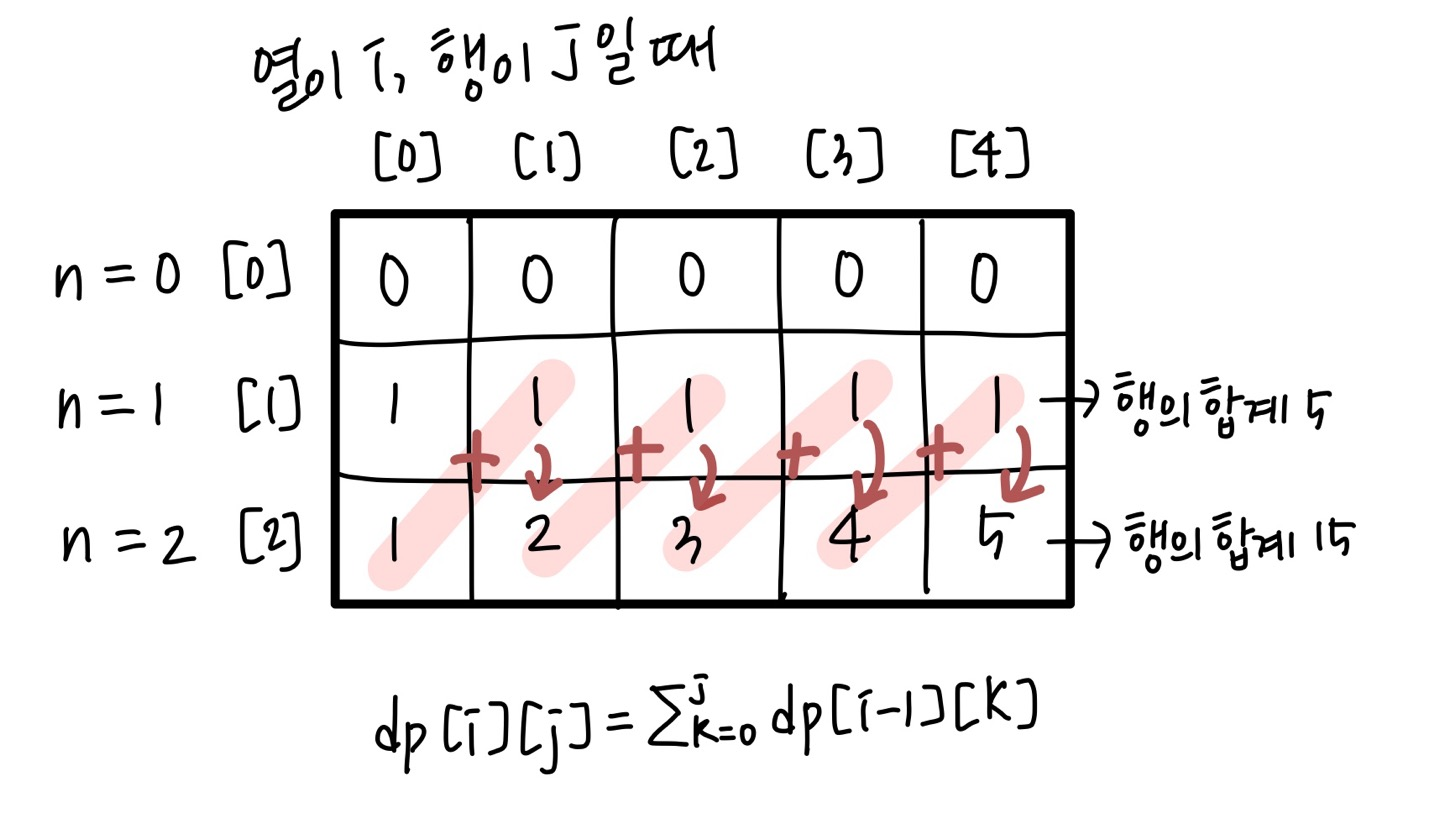 열이 i, 행이 j일 때
[0] [1] [2] [3] [4]
n = 0 [0] 0 0 0 0 0
n = 1 [1] 1 1 1 1 1 → 행의 합계 5
+ + + +
n = 2 [2] 1 2 3 4 5 → 행의 합계 15
dp[i][j] = ∑ʲₖ₌₀ dp[i-1][k]